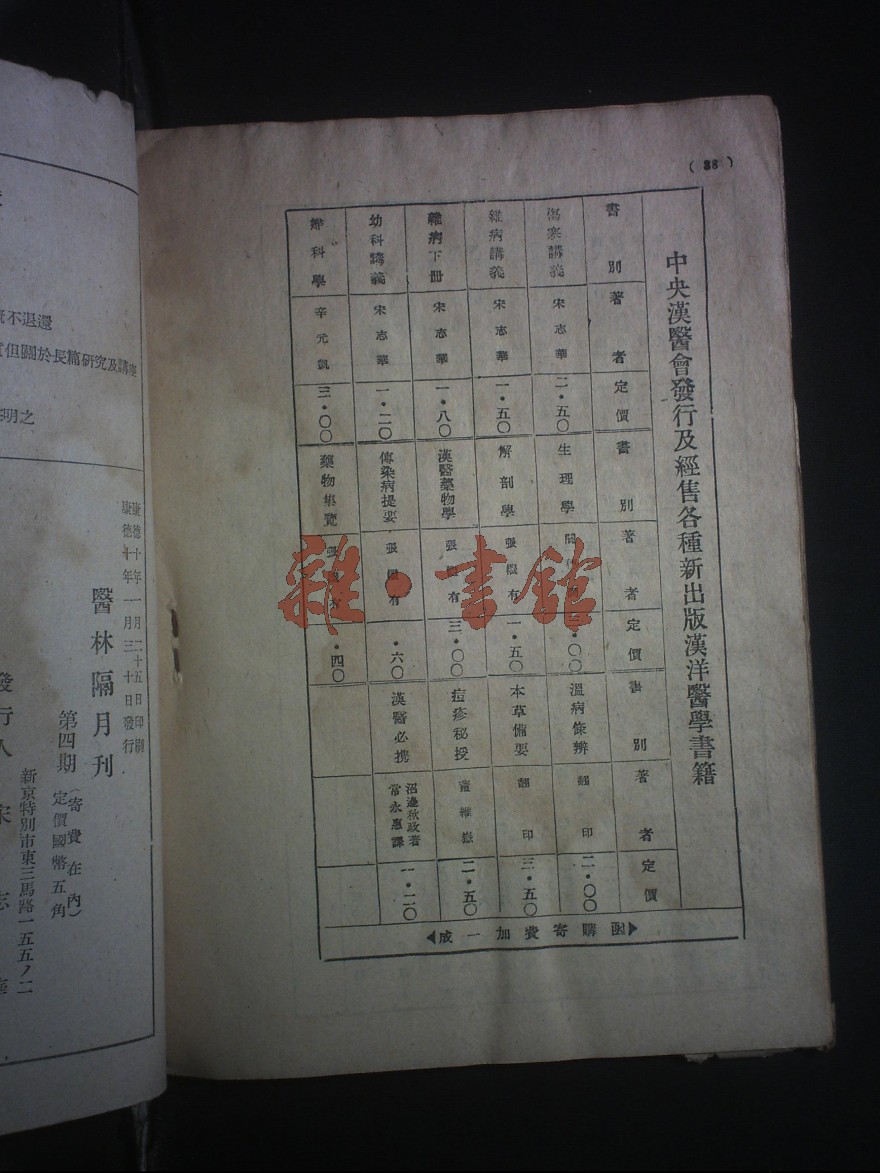 (38)
中央漢醫會發行及經售各種新出版漢洋醫學書籍
書別 著者 定價 書別 著者 定價 書別 著者 定價
傷寒講義 宋志華 二・五〇 生理學 〇〇 溫病條辨 翻印 二・〇〇
雜病講義 宋志華 一・五〇 解剖學 張繼有 一・五〇 本草備要 翻印 三・五〇
雜病下册 宋志華 一・八〇 漢醫藥物學 張繼有 三・〇〇 痘疹秘授 維嶽 二・五〇
幼科講義 宋志華 一・二〇 傳染病提要 張繼有 ・六〇 漢醫必携 沼邊秋政著 常永惠譯 一・二〇
婦科學 辛元凱 三・〇〇 藥物集覽 張繼有 ・四〇
▶函購寄費加一成◀
雜・書館
不退還
但關於長篇研究及講座
明之
康德十年一月二十五日印刷
康德十年一月三十日發行
醫林隔月刊
第四期(寄費在內)
定價國幣五角
新京特別市東三馬路一五五ノ二
發行人 宋志